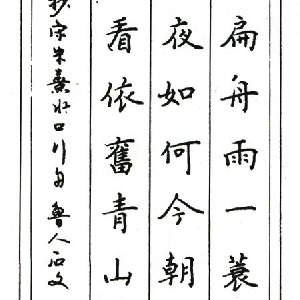 扁舟雨一蓑
夜如何今朝
看依奮青山
抄宋朱熹水口行舟 魯人石文